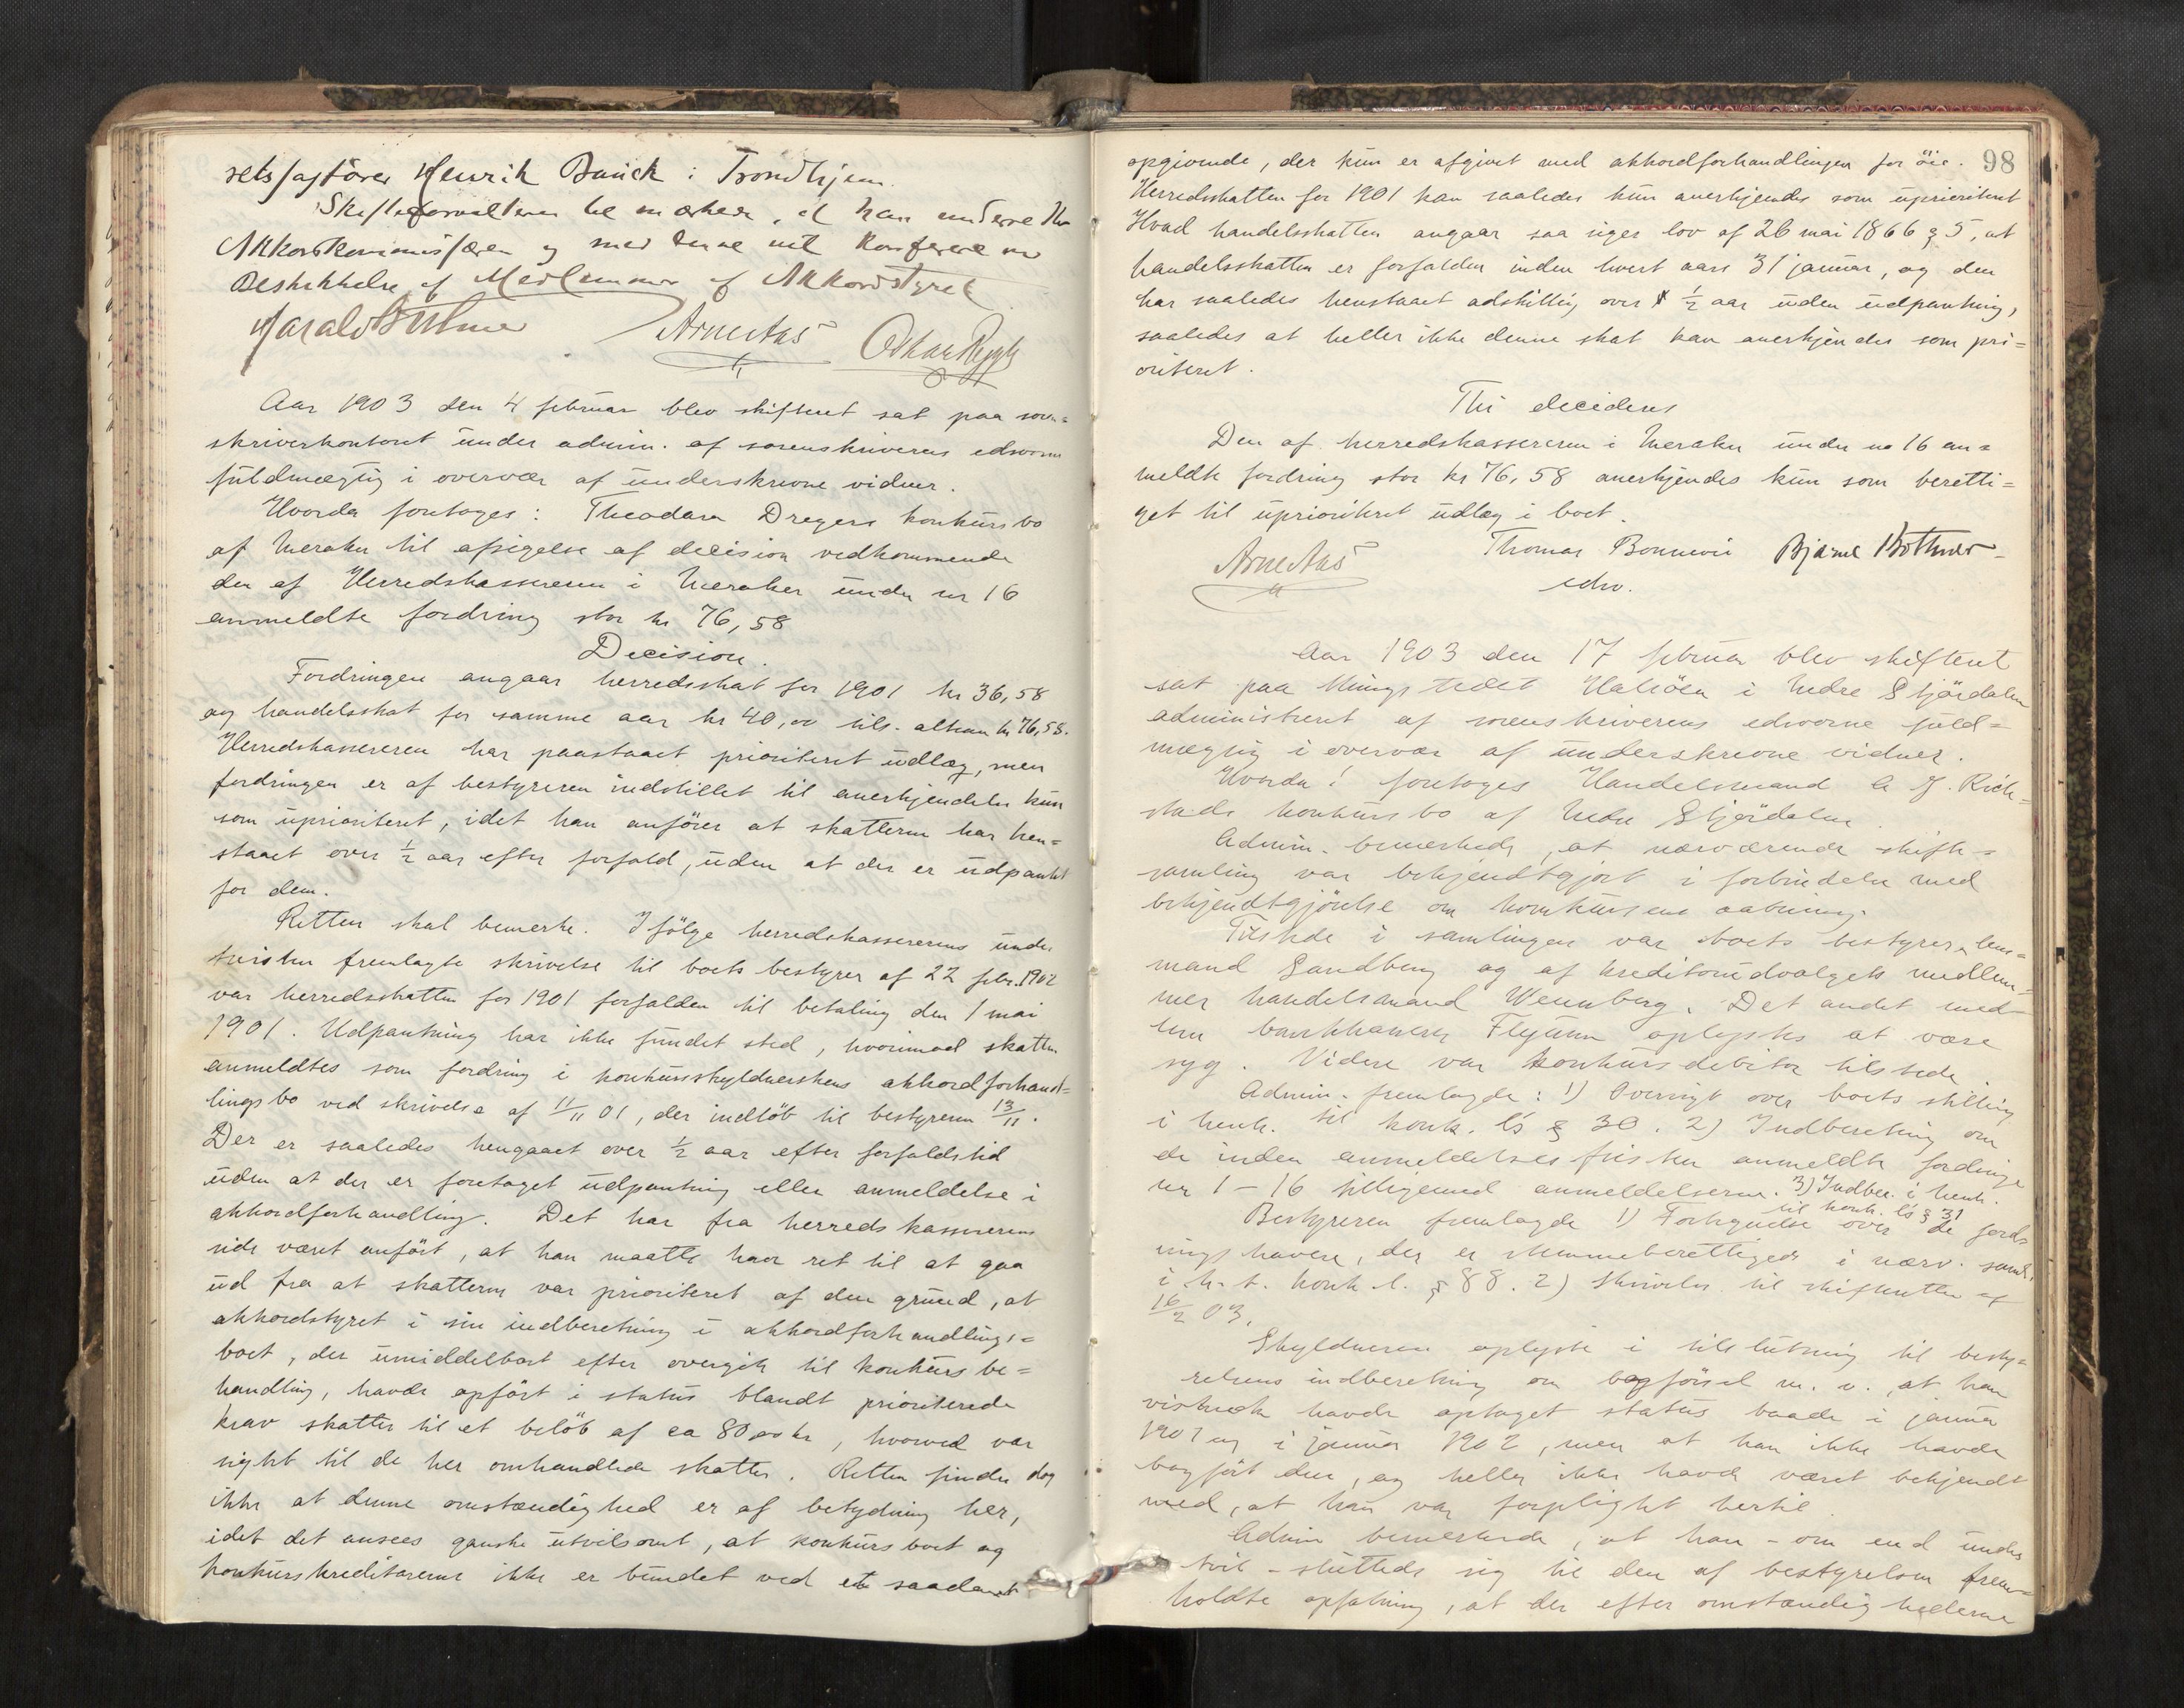 retssagfører Henrik Bauck i Trondhjem.
Skifteforvalteren bemærkede, at han underretter
Akkordkommissæren og med denne vil konferere om
Beskikkelse af Medlemmer af Akkordstyret.
Arne Aas
Aar 1903 den 4 februar blev skifteret sat paa soren=
skriverkontoret under admin. af sorenskriverens edsvorne
fuldmægtig i overvær af underskrevne vidner.
Hvorda foretoges: Theodora Dregers konkursbo
af Meraker til afsigelse af decision vedkommende
den af Herredskassereren i Meraker under nr 16
anmeldte fordring stor kr 76,58
Decision.
Fordringen angaar herredsskat for 1901 kr 36,58
og handelsskat for samme aar kr 40,00 tils. altsaa kr 76,58.
Herredskassereren har paastaaet prioriteret udlæg, men
fordringen er af bestyreren indstillet til anerkjendelse kun
som uprioriteret, idet han anfører at skatterne har hen=
staaet over ½ aar efter forfald, uden at der er udpantet
for dem.
Retten skal bemerke. Ifølge herredskassererens under
tvisten fremlagte skrivelse til boets bestyrer af 22 febr. 1902
var herredsskatten for 1901 forfalden til betaling den 1 mai
1901. Udpantning har ikke fundet sted, hvorimod skatten
anmeldtes som fordring i konkursskyldnerskens akkordforhand=
lingsbo ved skrivelse af 11/11 01, der indløb til bestyreren 13/11.
Der er saaledes hengaaet over ½ aar efter forfaldstid
uden at der er foretaget udpantning eller anmeldelse i
akkordforhandling. Det har fra herredskassererens
side været anført, at han maatte have ret til at gaa
ud fra at skatterne var prioriteret af den grund, at
akkordstyret i sin indberetning i akkordforhandlings=
boet, der umiddelbart efter overgik til konkursbe=
handling, havde opført i status blandt prioriterede
krav skatter til et beløb af ca 80,00 kr, hvorved var
sigtet til de her omhandlede skatter. Retten finder dog
ikke at denne omstændighed er af betydning her,
idet det ansees ganske utvilsomt, at konkursboet og
konkurskreditorerne ikke er bundet ved et saadant
98
opgivende, der kun er afgivet med akkordforhandlingen for øie.
Herredsskatten for 1901 kan saaledes kun anerkjendes som uprioriteret
Hvad handelsskatten angaar saa siger lov af 26 mai 1866 § 5, at
handelsskatten er forfalden inden hvert aars 31 januar, og den
har saaledes henstaaet adskillig over ½ aar uden udpantning,
saaledes at heller ikke denne skat kan anerkjendes som pri=
oriteret.
Thi decideres
Den af herredskassereren i Meraker under no 16 an=
meldte fordring stor kr 76,58 anerkjendes kun som beretti=
get til uprioriteret udlæg i boet.
Arne Aas Thomas Bonnevie Bjarne Bothner
edsv.
Aar 1903 den 17 februar blev skifteret
sat paa thingstedet Halsöen i Nedre Stjørdalen
administreret af sorenskriverens edsvorne fuld=
mægtig i overvær af underskrevne vidner.
Hvorda: foretoges Handelsmand J. Rich=
stads konkursbo af Nedre Stjørdalen.
Admin. bemerkede, at nærværende skifte=
samling var bekjendtgjort i forbindelse med
bekjendtgjørelse om konkursens aabning.
Tilstede i samlingen var boets bestyrer, lens=
mand Sandberg og af kreditorudvalgets medlem=
mer handelsmand Wennberg. Det andet med=
lem bankkasserer Flejum oplystes at være
syg. Videre var konkursdebitor tilstede.
Admin. fremlagde: 1) Oversigt over boets stilling
i henh. til konk. l's § 30. 2) Indberetning om
de inden anmeldelsesfristen anmeldte fordringer
nr 1 – 16 tilligemed anmeldelserne. 3) Indber. i henh.
til konk. l's § 31
Bestyreren fremlagde 1) Fortegnelse over de fordr=
ingshavere, der er stemmeberettigede i nærv. saml.
i h. t. konk l. § 88. 2) Skrivelse til skifteretten af
16/2 03.
Skyldneren oplyste i tilslutning til besty=
relsens indberetning om bogførsel m. v., at han
vistnok havde optaget status baade i januar
1901 og i januar 1902, men at han ikke havde
bogført den, og heller ikke havde været bekjendt
med, at han var forpligtet hertil.
Admin bemerkede, at han – om end under
tvil – sluttede sig til den af bestyrelsen frem=
holdte opfatning, at der efter omstændighederne